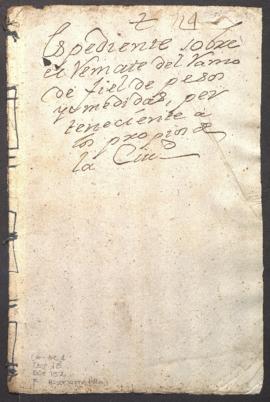 2 24
Espediente sobre
el Remate del Ramo
de fiel de pesos
y medidas, per
teneciente a
los propios de
la Ciud